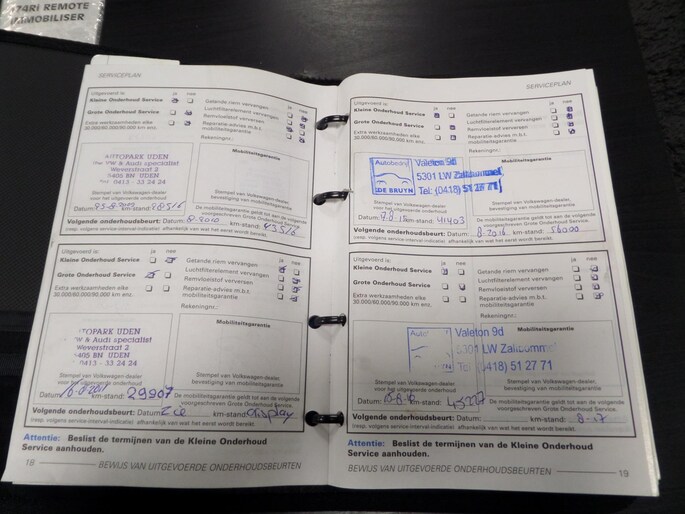 74Ri REMOTE
IMMOBILISER
SERVICEPLAN
Uitgevoerd is: ja nee
Kleine Onderhoud Service
Grote Onderhoud Service
Extra werkzaamheden elke
30.000/60.000/90.000 km enz.
ja nee
Getande riem vervangen
Luchtfilterelement vervangen
Remvloeistof verversen
Reparatie-advies m.b.t.
mobiliteitsgarantie
Rekeningnr.:
AUTOPARK UDEN
VW & Audi specialist
Weverstraat 2
5405 BN UDEN
0413 - 33 24 24
Stempel van Volkswagen-dealer
voor het uitgevoerde onderhoud
Mobiliteitsgarantie
Stempel van Volkswagen-dealer,
bevestiging van mobiliteitsgarantie
Datum: km-stand: 28516
De mobiliteitsgarantie geldt tot en de volgende
voorgeschreven Grote Onderhoud Service.
Volgende onderhoudsbeurt: Datum: 8-2010 km-stand: 43516
(resp. volgens service-interval-indicatie) afhankelijk van wat het eerst wordt bereikt.
Uitgevoerd is: ja nee
Kleine Onderhoud Service
Grote Onderhoud Service
Extra werkzaamheden elke
30.000/60.000/90.000 km enz.
ja nee
Getande riem vervangen
Luchtfilterelement vervangen
Remvloeistof verversen
Reparatie-advies m.b.t.
mobiliteitsgarantie
Rekeningnr.:
TOPARK UDEN
VW & Audi specialist
Weverstraat 2
5405 BN UDEN
0413 - 33 24 24
Stempel van Volkswagen-dealer
voor het uitgevoerde onderhoud
Mobiliteitsgarantie
Stempel van Volkswagen-dealer,
bevestiging van mobiliteitsgarantie
Datum: km-stand: 29907
De mobiliteitsgarantie geldt tot en de volgende
voorgeschreven Grote Onderhoud Service.
Volgende onderhoudsbeurt: Datum: Zie km-stand: display
(resp. volgens service-interval-indicatie) afhankelijk van wat het eerst wordt bereikt.
Attentie: Beslist de termijnen van de Kleine Onderhoud
Service aanhouden.
18 BEWIJS VAN UITGEVOERDE ONDERHOUDSBEURTEN
SERVICEPLAN
Uitgevoerd is: ja nee
Kleine Onderhoud Service
Grote Onderhoud Service
Extra werkzaamheden elke
30.000/60.000/90.000 km enz.
ja nee
Getande riem vervangen
Luchtfilterelement vervangen
Remvloeistof verversen
Reparatie-advies m.b.t.
mobiliteitsgarantie
Rekeningnr.:
Autobedrijf
DE BRUYN
Valeton 9d
5301 LW Zaltbommel
Tel: (0418) 51 27 71
Mobiliteitsgarantie
Stempel van Volkswagen-dealer
voor het uitgevoerde onderhoud
Stempel van Volkswagen-dealer,
bevestiging van mobiliteitsgarantie
Datum: km-stand: 41403
De mobiliteitsgarantie geldt tot en de volgende
voorgeschreven Grote Onderhoud Service.
Volgende onderhoudsbeurt: Datum: 8-2016 km-stand: 56000
(resp. volgens service-interval-indicatie) afhankelijk van wat het eerst wordt bereikt.
Uitgevoerd is: ja nee
Kleine Onderhoud Service
Grote Onderhoud Service
Extra werkzaamheden elke
30.000/60.000/90.000 km enz.
ja nee
Getande riem vervangen
Luchtfilterelement vervangen
Remvloeistof verversen
Reparatie-advies m.b.t.
mobiliteitsgarantie
Rekeningnr.:
Auto
Valeton 9d
5301 LW Zaltbommel
Tel: (0418) 51 27 71
Mobiliteitsgarantie
Stempel van Volkswagen-dealer
voor het uitgevoerde onderhoud
Stempel van Volkswagen-dealer,
bevestiging van mobiliteitsgarantie
Datum: km-stand: 45227
De mobiliteitsgarantie geldt tot en de volgende
voorgeschreven Grote Onderhoud Service.
Volgende onderhoudsbeurt: Datum: km-stand: 8-17
(resp. volgens service-interval-indicatie) afhankelijk van wat het eerst wordt bereikt.
Attentie: Beslist de termijnen van de Kleine Onderhoud
Service aanhouden.
BEWIJS VAN UITGEVOERDE ONDERHOUDSBEURTEN 19